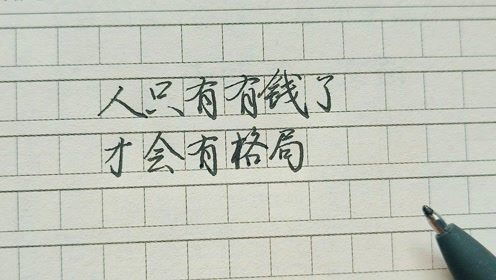 人只有有钱了
才会有格局